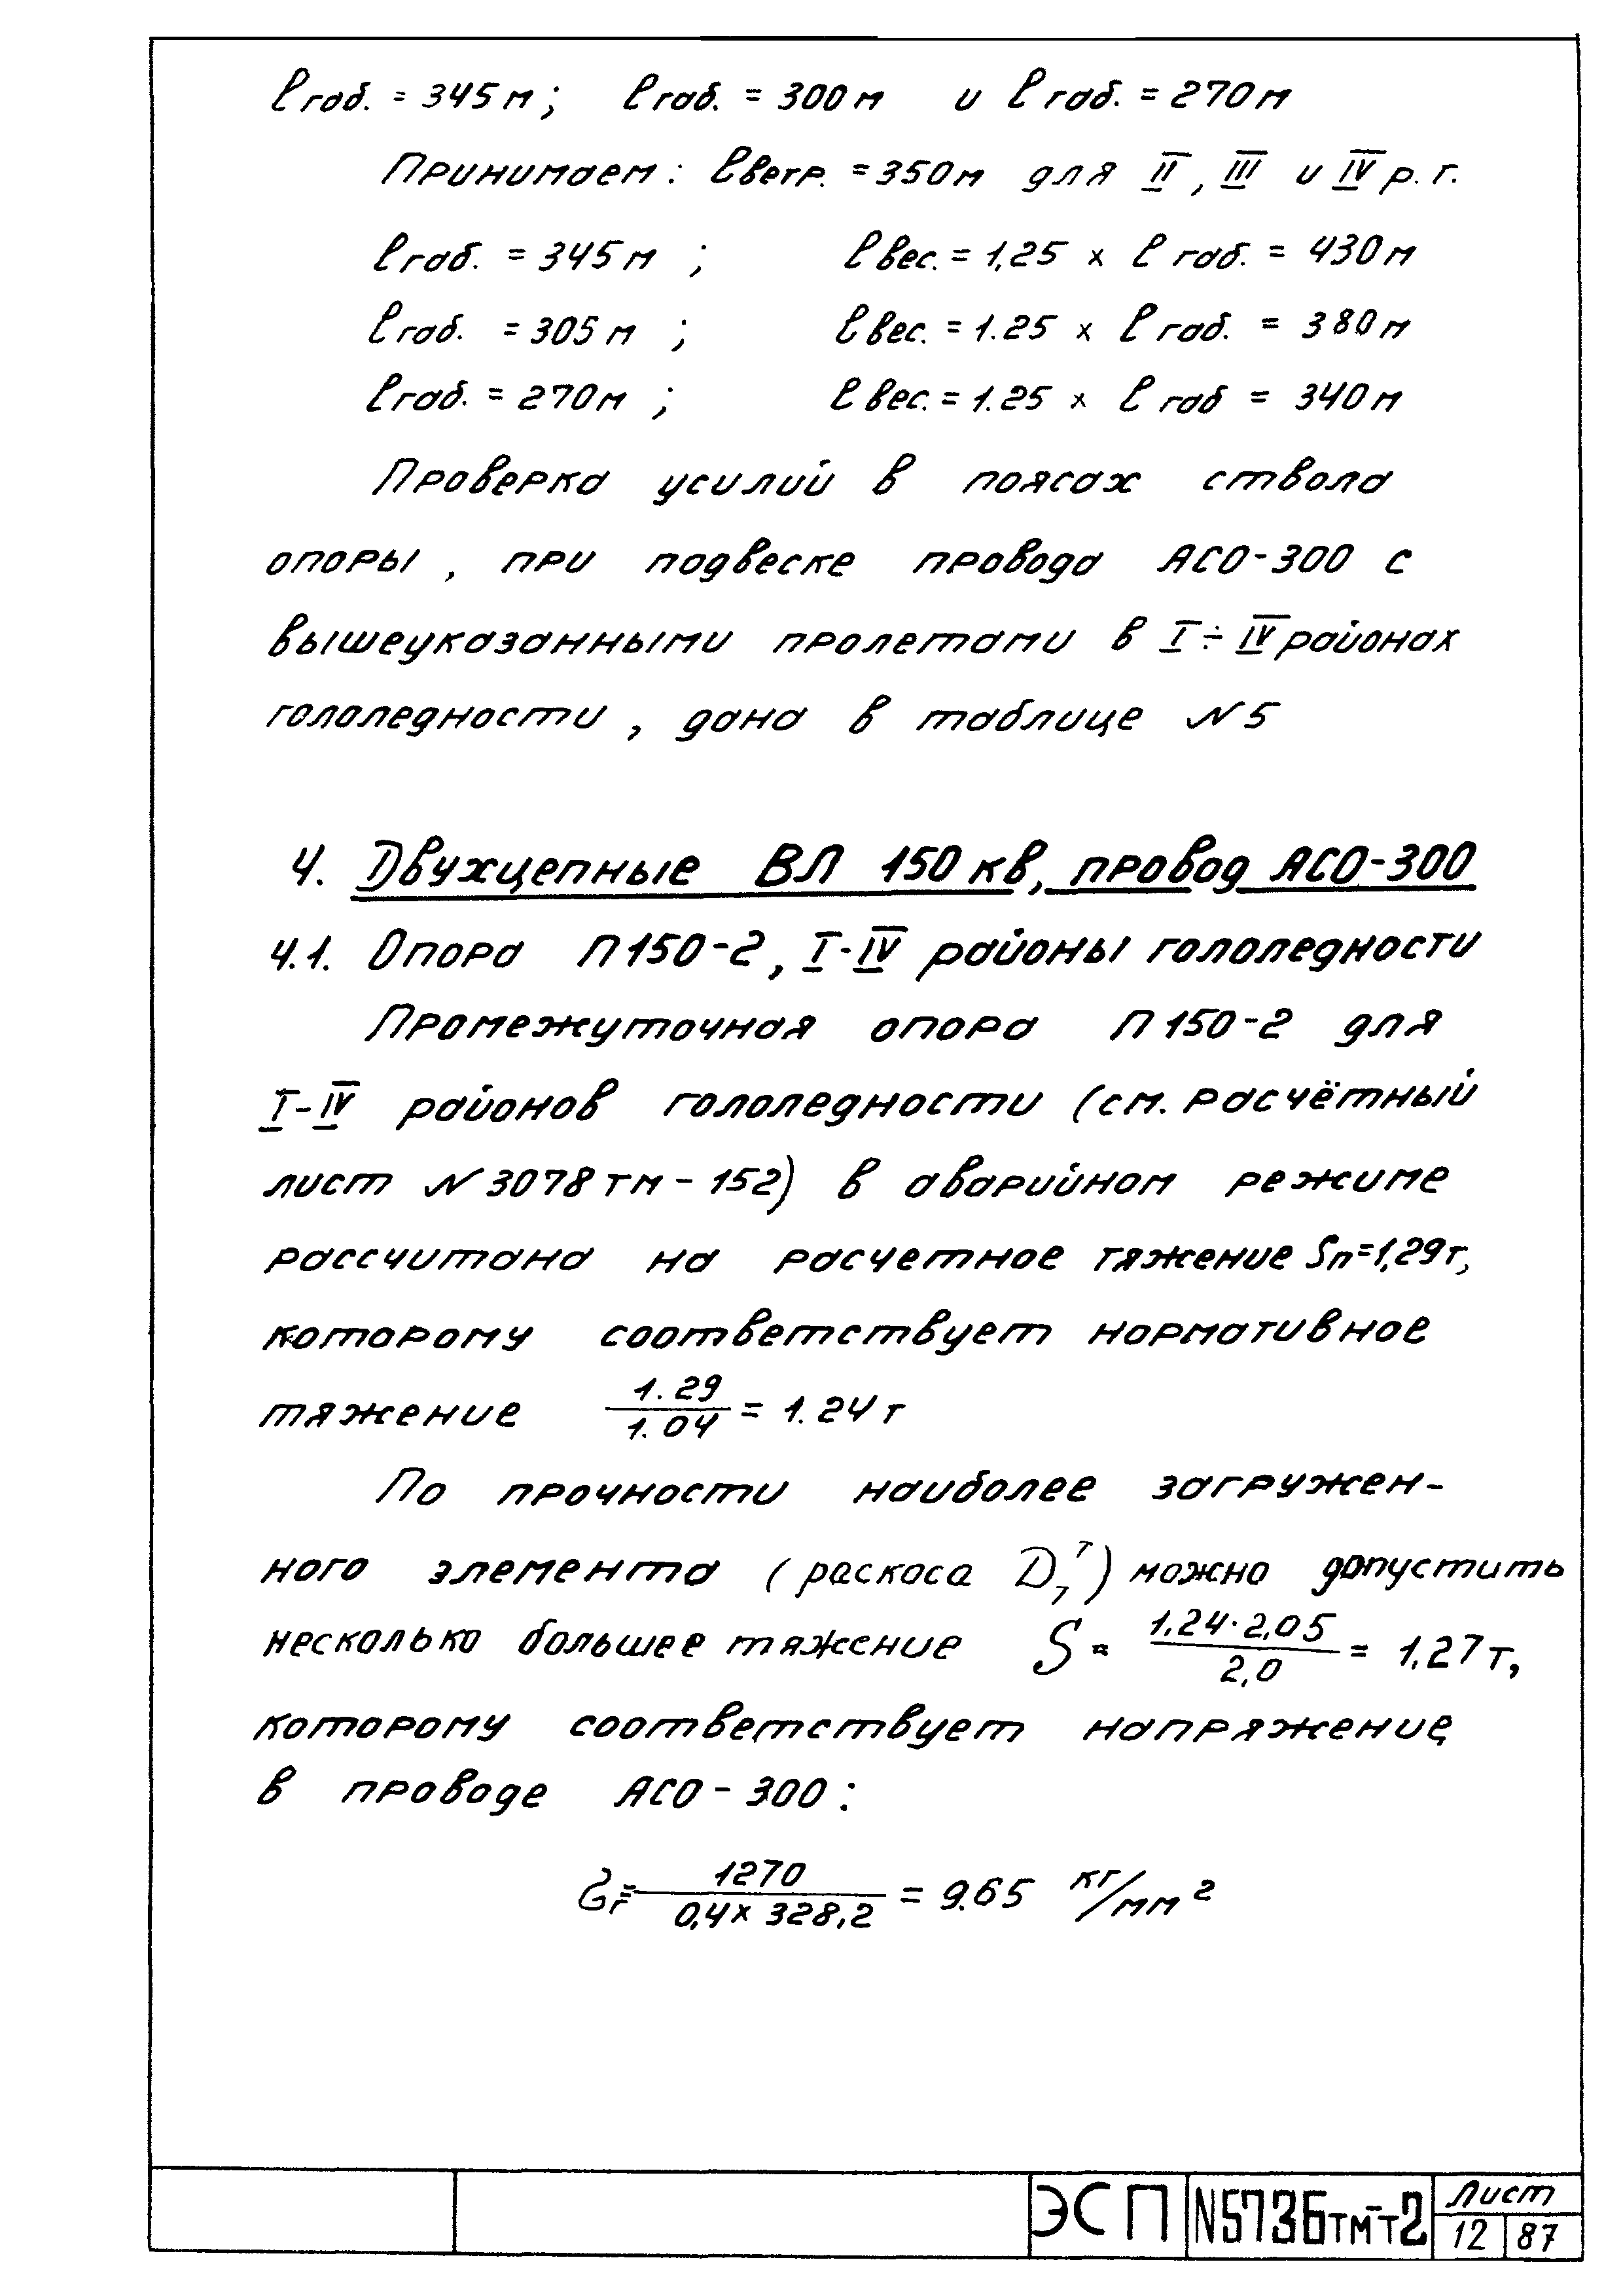 ℓгаб. = 345 м; ℓгаб. = 300 м и ℓгаб. = 270 м
Принимаем: ℓветр. = 350 м для II, III и IV р. г.
ℓгаб. = 345 м ; ℓвес. = 1,25 × ℓгаб. = 430 м
ℓгаб. = 305 м ; ℓвес. = 1.25 × ℓгаб. = 380 м
ℓгаб. = 270 м ; ℓвес. = 1.25 × ℓгаб = 340 м
Проверка усилий в поясах ствола
опоры, при подвеске провода АСО-300 с
вышеуказанными пролетами в I ÷ IV районах
гололедности, дана в таблице N 5
4. Двухцепные ВЛ 150 кв, провод АСО-300
4.1. Опора П150-2, I-IV районы гололедности
Промежуточная опора П150-2 для
I-IV районов гололедности (см. расчётный
лист N 3078 тм - 152) в аварийном режиме
рассчитана на расчетное тяжение Sп=1,29т,
которому соответствует нормативное
тяжение 1.29/1.04 = 1.24 т
По прочности наиболее загружен-
ного элемента (раскоса D₇ᵀ) можно допустить
несколько большее тяжение S = 1,24·2,05/2,0 = 1,27 т,
которому соответствует напряжение
в проводе АСО-300:
σг = 1270/0,4 × 328,2 = 9.65 кг/мм²
ЭСП N5736тм-т2 Лист
12 87